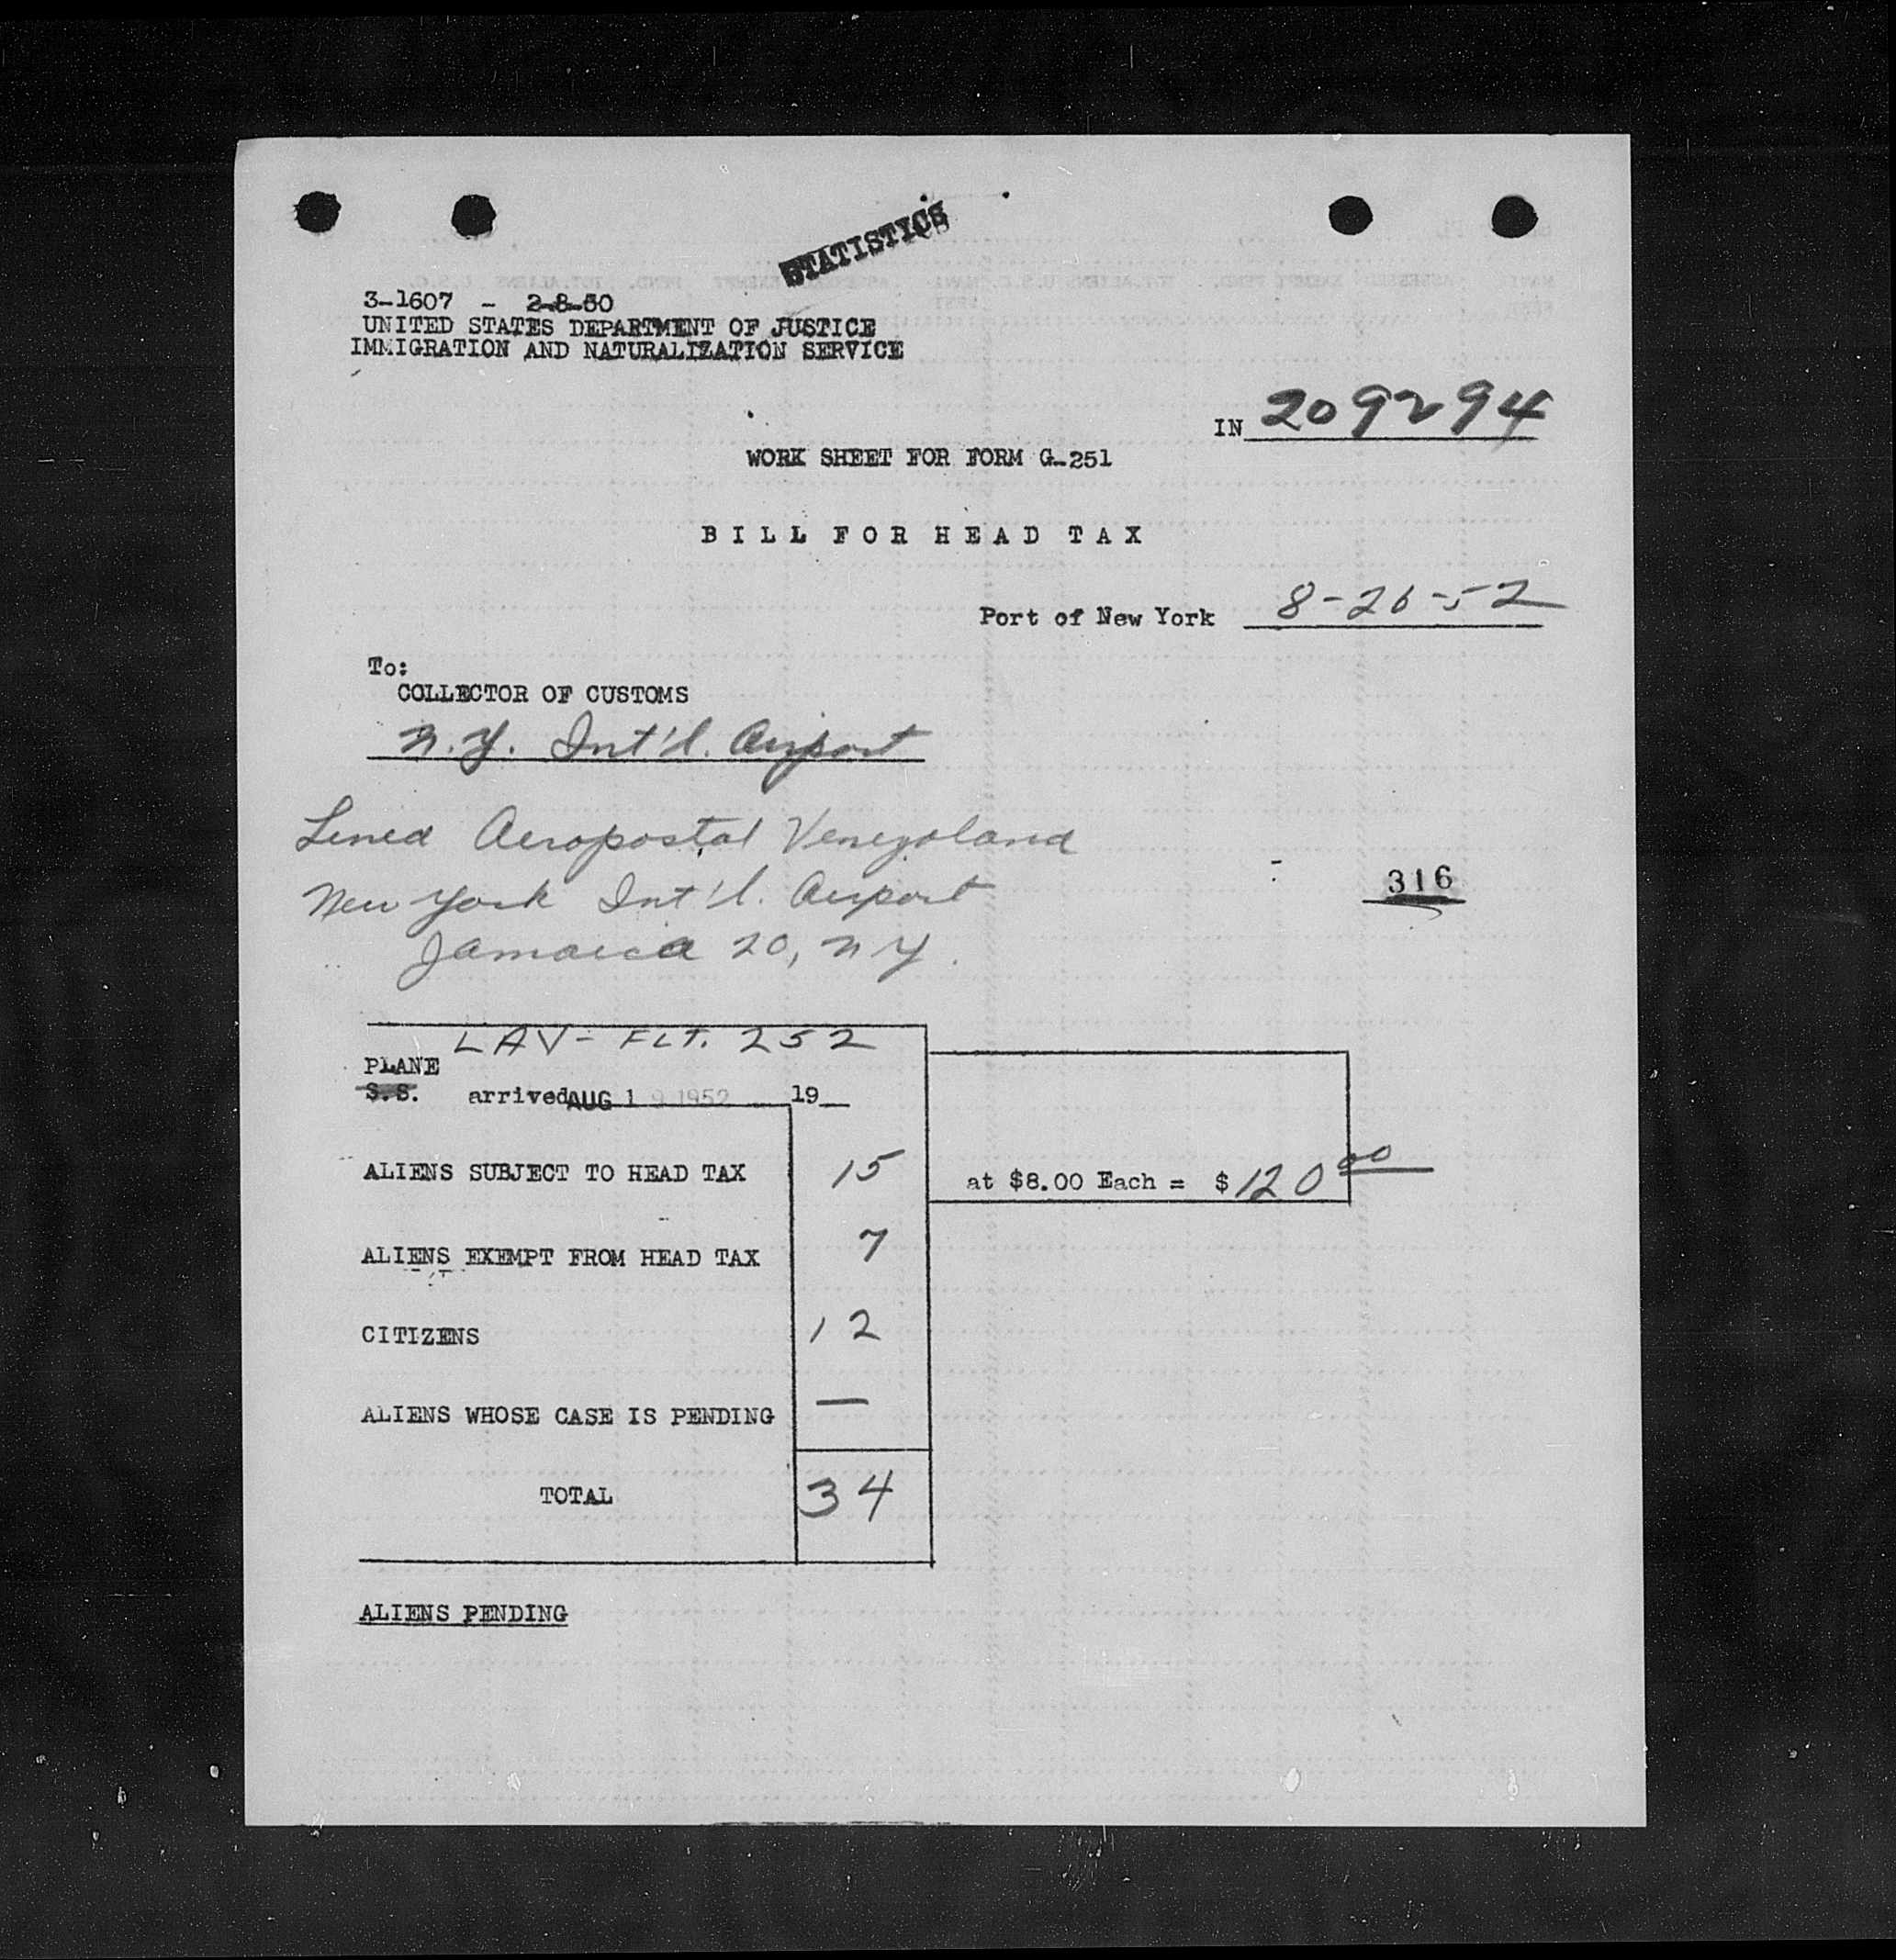 STATISTICS
3-1607 - 2-8-50
UNITED STATES DEPARTMENT OF JUSTICE
IMMIGRATION AND NATURALIZATION SERVICE
IN 209294
WORK SHEET FOR FORM G-251
BILL FOR HEAD TAX
Port of New York 8-26-52
To:
COLLECTOR OF CUSTOMS
N.Y. Int'l. Airport
Linea Aeropostal Venezolana
New York Int'l. Airport
316
Jamaica 20, N Y.
LAV- FLT. 252
PLANE
S.S. arrived AUG 19 1952 19
ALIENS SUBJECT TO HEAD TAX 15 at $8.00 Each = $120.00
ALIENS EXEMPT FROM HEAD TAX 7
CITIZENS 12
ALIENS WHOSE CASE IS PENDING —
TOTAL 34
ALIENS PENDING